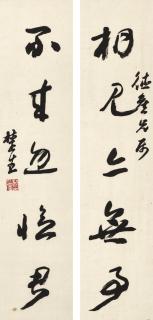 相見亦無事
德彝先生屬
不來忽憶君
楚生